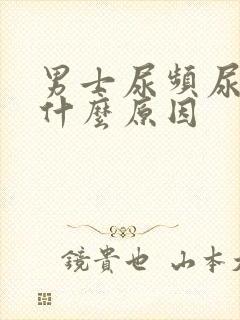 男士尿頻尿
什麼原因
鏡貴也 山本